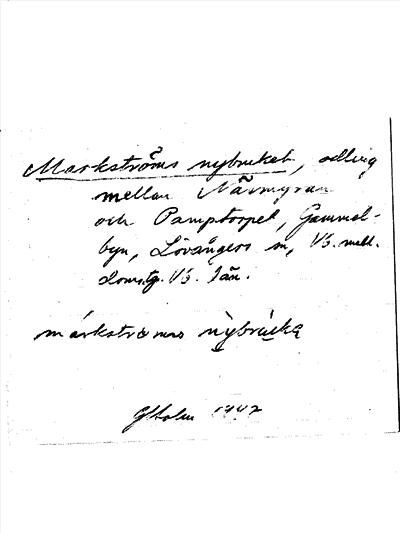 Markströms nybruket, odling
mellan Nävmyran
och Pamptorpet, Gammal-
byn, Lövångers sn, Vb. mell.
domstg. Vb. län.
márkstroms nỳbrùcka
GHolm 1942